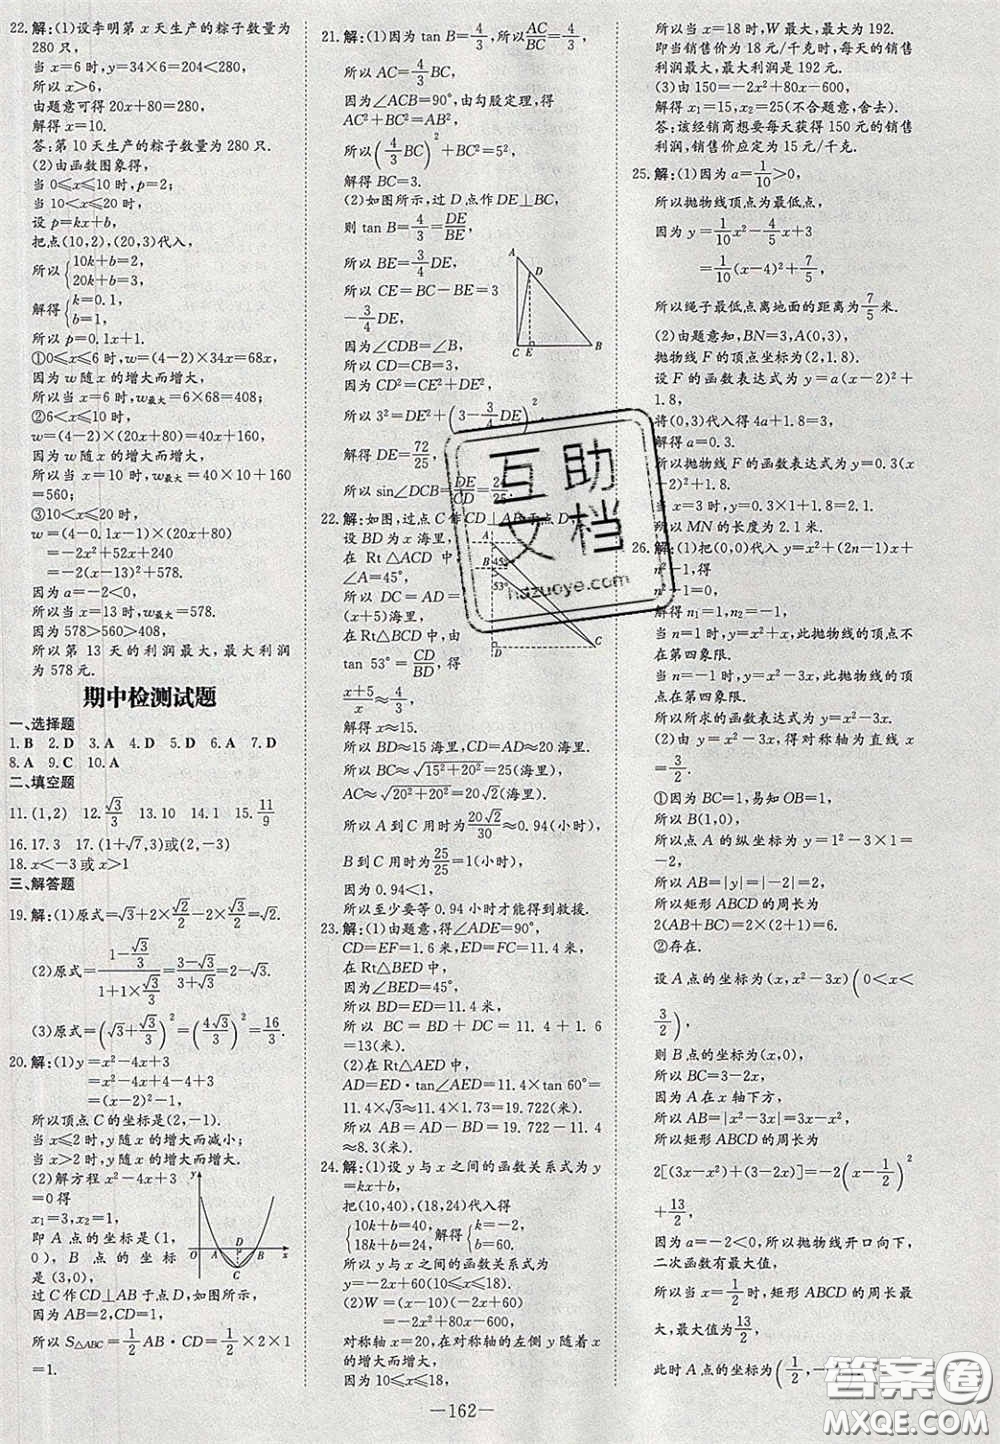 22.解:(1)设李明第x天生产的粽子数量为
280只,
当x=6时,y=34×6=204<280,
所以x>6,
由题意可得20x+80=280,
解得x=10.
答:第10天生产的粽子数量为280只.
(2)由函数图象得,
当0⩽x⩽10时,p=2;
当10<x⩽20时,
设p=kx+b,
把点(10,2),(20,3)代入,
所以{10k+b=2, 20k+b=3,
解得{k=0.1, b=1,
所以p=0.1x+1.
①0⩽x⩽6时,w=(4-2)×34x=68x,
因为w随x的增大而增大,
所以当x=6时,w最大=6×68=408;
②6<x⩽10时,
w=(4-2)×(20x+80)=40x+160,
因为w随x的增大而增大,
所以当x=10时,w最大=40×10+160
=560;
③10<x⩽20时,
w=(4-0.1x-1)×(20x+80)
=-2x²+52x+240
=-2(x-13)²+578,
因为a=-2<0,
所以当x=13时,w最大=578.
因为578>560>408,
所以第13天的利润最大,最大利润
为578元.
期中检测试题
一、选择题
1.B 2.D 3.A 4.D 5.D 6.A 7.D
8.A 9.C 10.A
二、填空题
11.(1,2) 12.√3/3 13.10 14.1 15.11/9
16.17.3 17.(1+√7,3)或(2,-3)
18.x<-3或x>1
三、解答题
19.解:(1)原式=√3+2×√2/2-2×√3/2=√2.
(2)原式=(1-√3/3)/(1+1×√3/3)=(3-√3)/(3+√3)=2-√3.
(3)原式=(√3+√3/3)²=(4√3/3)²=16/3.
20.解:(1)y=x²-4x+3
=x²-4x+4-4+3
=(x-2)²-1,
所以顶点C的坐标是(2,-1),
当x⩽2时,y随x的增大而减小;
当x>2时,y随x的增大而增大.
(2)解方程x²-4x+3
=0得
x₁=3,x₂=1,
即A点的坐标是(1,
0),B点的坐标
是(3,0),
过C作CD⊥AB于点D,如图所示,
y O A D B x C
因为AB=2,CD=1,
所以S△ABC=1/2 AB·CD=1/2×2×1
=1.
21.解:(1)因为tan B=4/3,所以AC/BC=4/3,
所以AC=4/3 BC,
因为∠ACB=90°,由勾股定理,得
AC²+BC²=AB²,
所以(4/3 BC)²+BC²=5²,
解得BC=3.
(2)如图所示,过D点作DE⊥BC,
则tan B=4/3=DE/BE,
所以BE=3/4 DE,
所以CE=BC-BE=3
-3/4 DE,
A D C E B
因为∠CDB=∠BCD,
所以CD=CB=3,
因为CD²=CE²+DE²,
所以3²=DE²+(3-3/4 DE)²,
解得DE=72/25,
所以sin∠DCB=DE/CD=24/25.
22.解:如图,过点C作CD⊥AB于点D,
设BD为x海里,
在Rt△ACD中,
∠A=45°,
所以DC=AD=
(x+5)海里,
在Rt△BCD中,
tan 53°=CD/BD,得
(x+5)/x≈4/3,
A 45° B 53° D C
解得x≈15.
所以BD≈15海里,CD=AD≈20海里.
所以BC≈√(15²+20²)=25(海里),
AC≈√(20²+20²)=20√2(海里).
所以A到C用时为20√2/30≈0.94(小时),
B到C用时为25/25=1(小时),
因为0.94<1,
所以至少要等0.94小时才能得到救援.
23.解:(1)由题意,得∠ADE=90°,
CD=EF=1.6米,ED=FC=11.4米,
在Rt△BED中,
因为∠BED=45°,
所以BD=ED=11.4米,
所以BC=BD+DC=11.4+1.6
=13(米).
(2)在Rt△AED中,
AD=ED·tan∠AED=11.4×tan 60°=
11.4×√3≈11.4×1.73=19.722(米),
所以AB=AD-BD=19.722-11.4
≈8.3(米).
24.解:(1)设y与x之间的函数关系式为y
=kx+b,
把(10,40),(18,24)代入得
{10k+b=40, 18k+b=24, 解得{k=-2, b=60,
所以y与x之间的函数关系式为
y=-2x+60(10⩽x⩽18).
(2)W=(x-10)(-2x+60)
=-2x²+80x-600,
对称轴x=20,在对称轴的左侧y随着x
的增大而增大,
因为10⩽x⩽18,
所以当x=18时,W最大,最大为192.
即当销售价为18元/千克时,每天的销售
利润最大,最大利润是192元.
(3)由150=-2x²+80x-600,
解得x₁=15,x₂=25(不合题意,舍去).
答:该经销商想要每天获得150元的销售
利润,销售价应定为15元/千克.
25.解:(1)因为a=1/10>0,
所以抛物线顶点为最低点,
因为y=1/10 x²-4/5 x+3
=1/10(x-4)²+7/5,
所以绳子最低点离地面的距离为7/5米.
(2)由题意知,BN=3,A(0,3),
抛物线F的顶点坐标为(2,1.8).
设F的函数表达式为y=a(x-2)²+
1.8,
将(0,3)代入得4a+1.8=3,
解得a=0.3.
所以抛物线F的函数表达式为y=0.3(x
-2)²+1.8.
当x=3时,y=0.3×1+1.8=2.1,
所以MN的长度为2.1米.
26.解:(1)把(0,0)代入y=x²+(2n-1)x+
n²-1,得
n²-1=0,
解得n₁=1,n₂=-1,
当n=1时,y=x²+x,此抛物线的顶点不
在第四象限.
当n=-1时,y=x²-3x,此抛物线的顶
点在第四象限.
所以所求的函数表达式为y=x²-3x.
(2)由y=x²-3x,得对称轴为直线x=
3/2.
①因为BC=1,易知OB=1,
所以B(1,0),
所以点A的纵坐标为y=1²-3×1=
-2.
所以AB=|y|=|-2|=2,
所以矩形ABCD的周长为
2(AB+BC)=2×(2+1)=6.
②存在.
设A点的坐标为(x,x²-3x)(0<x<
3/2),
则B点的坐标为(x,0),
所以BC=3-2x,
因为A在x轴下方,
所以AB=|x²-3x|=3x-x²,
所以矩形ABCD的周长为
2[(3x-x²)+(3-2x)]=-2(x-1/2)²
+13/2,
因为a=-2<0,所以抛物线开口向下,
二次函数有最大值,
所以当x=1/2时,矩形ABCD的周长最
大,最大值为13/2.
此时A点的坐标为(1/2,
—162—
互助
文档
hezuoye.com
答案圈
MXQE.COM